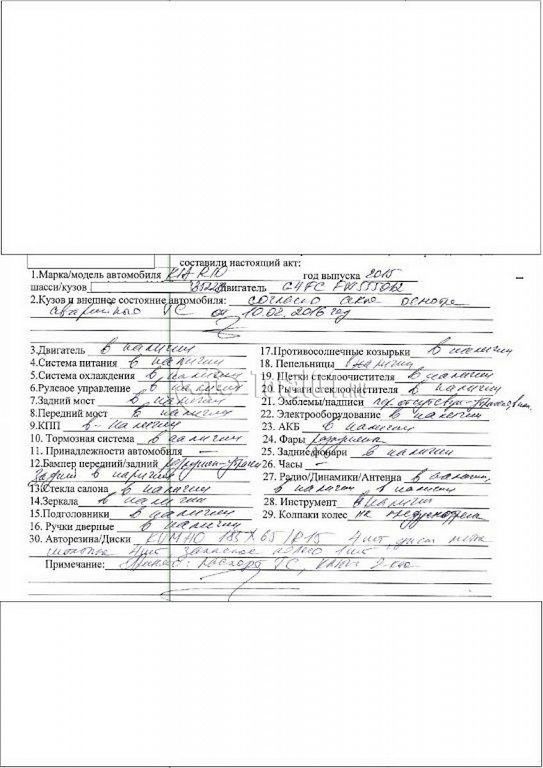 составили настоящий акт:
1.Марка/модель автомобиля KIA RIO год выпуска 2015
шасси/кузов двигатель G4FC
2.Кузов и внешнее состояние автомобиля: согласно акта осмотра
аварийного ТС от 10.02.2016 год
3.Двигатель в наличии
4.Система питания в наличии
5.Система охлаждения в наличии
6.Рулевое управление в наличии
7.Задний мост в наличии
8.Передний мост в наличии
9.КПП в наличии
10. Тормозная система в наличии
11. Принадлежности автомобиля —
12.Бампер передний/задний
Задний в наличии
13.Стекла салона в наличии
14.Зеркала в наличии
15.Подголовники в наличии
16. Ручки дверные в наличии
17.Противосолнечные козырьки в наличии
18. Пепельницы в наличии
19. Щетки стеклоочистителя в наличии
20. Рычаги стеклоочистителя в наличии
21. Эмблемы/надписи
22. Электрооборудование в наличии
23. АКБ в наличии
24. Фары
25. Задние фонари в наличии
26. Часы —
27. Радио/Динамики/Антенна в наличии,
в наличии в наличии
28. Инструмент в наличии
29. Колпаки колес не
30. Авторезина/Диски 185 X 65 / R15 4 шт, диски
4 шт запасное 1 шт
Примечание: паспорт ТС, ключ